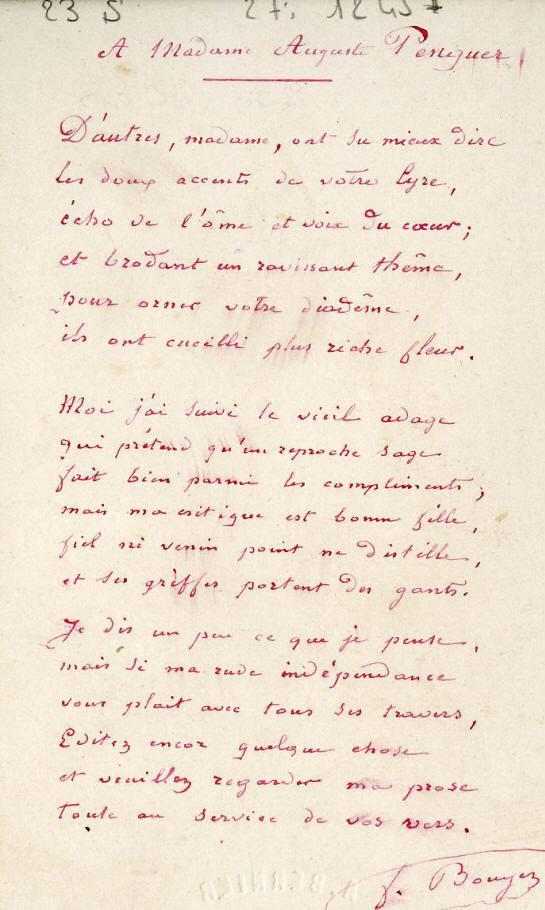 23 S 27. 12457
A Madame Auguste Penquer
D'autres, madame, ont su mieux dire
les doux accents de votre lyre,
écho de l'âme et voix du cœur ;
et brodant un ravissant thême,
pour orner votre diadême,
ils ont cueilli plus riche fleur.
Moi j'ai suivi le vieil adage
qui prétend qu'un reproche sage
fait bien parmi les compliments ;
mais ma critique est bonne fille,
fiel ni venin point ne distille,
et ses griffes portent des gants.
Je dis un peu ce que je pense,
mais si ma rude indépendance
vous plait avec tous ses travers,
Editez encor quelque chose
et veuillez regarder ma prose
toute au service de vos vers.
f. Bouyer